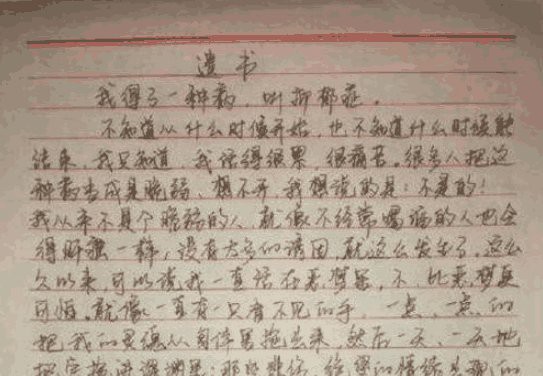 遗书
我得了一种病，叫抑郁症。
不知道从什么时候开始，也不知道什么时候能
结束，我只知道，我活得很累，很痛苦。很多人把这
种病当成是脆弱、想不开，我想说的是：不是的！
我从来不是个脆弱的人，就像不经常喝酒的人也会
得肝癌一样，没有太多的诱因，就这么发生了，这么
久以来，可以说我一直活在恶梦里，不，比恶梦更
可怕，就像一直有一只看不见的手，一点、一点的
把我的灵魂从身体里拖出来，然后一天、一天地